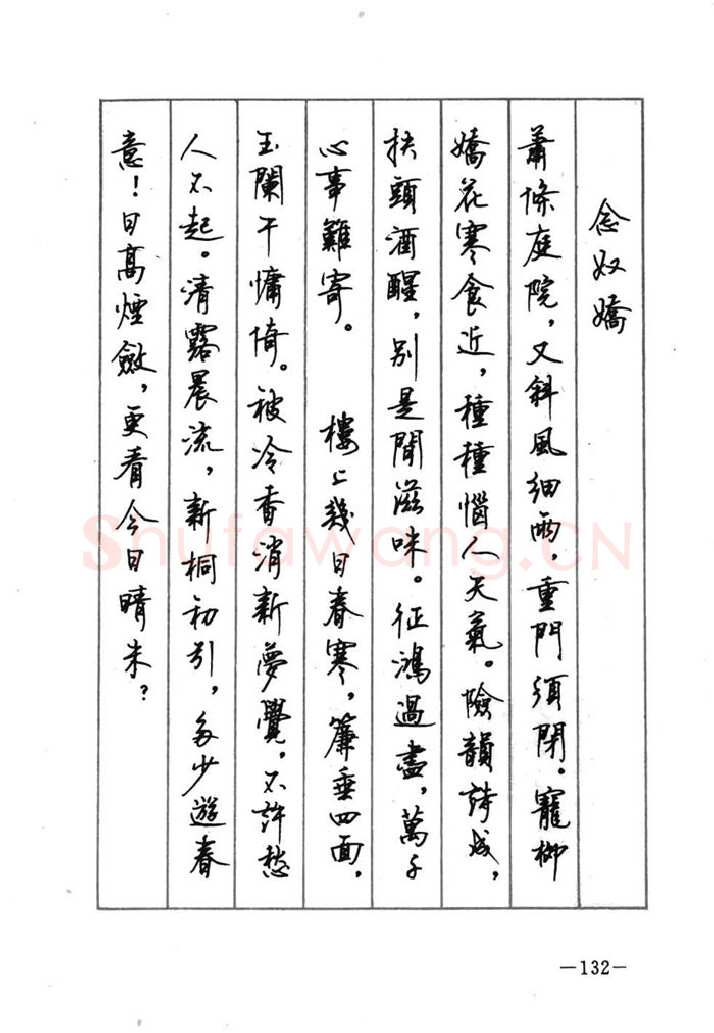 念奴嬌
蕭條庭院,又斜風細雨,重門須閉。寵柳
嬌花寒食近,種種惱人天氣。險韻詩成,
扶頭酒醒,別是閒滋味。征鴻過盡,萬千
心事難寄。 樓上幾日春寒,簾垂四面,
玉闌干慵倚。被冷香消新夢覺,不許愁
人不起。清露晨流,新桐初引,多少遊春
意!日高煙斂,更看今日晴未?
Shufawang.CN
—132—